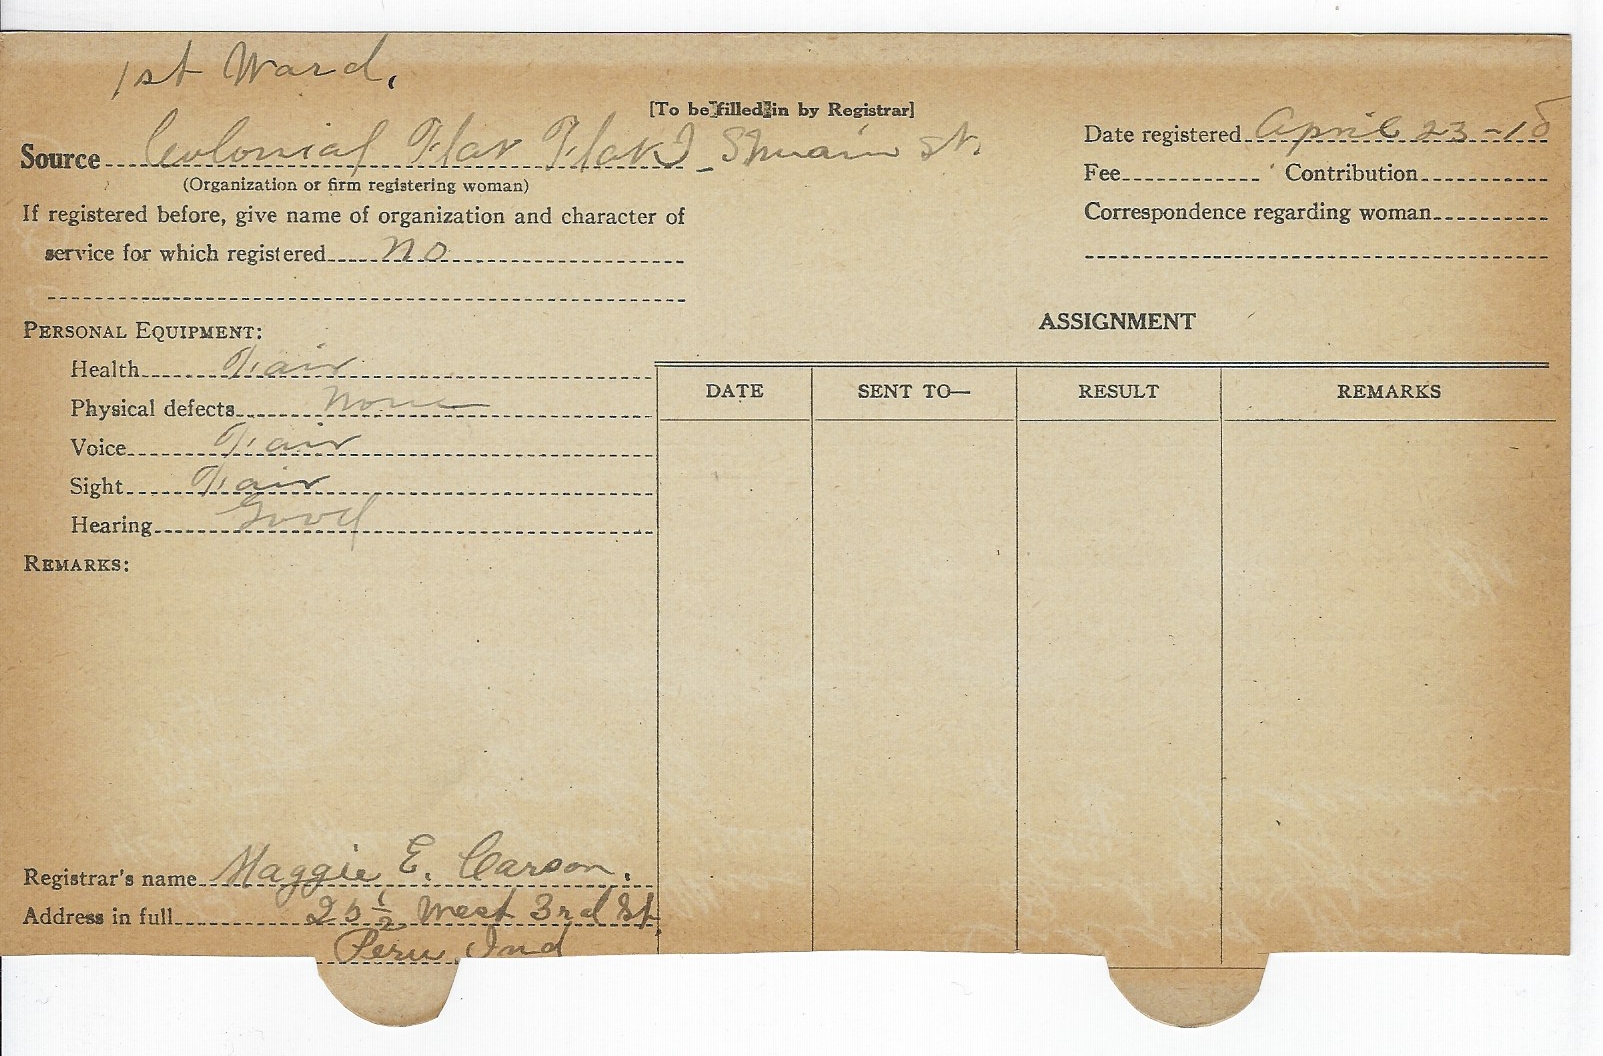 1st Ward.
[To be filled in by Registrar]
Source Colonial Flat Flat St.
Date registered April 23-18
(Organization or firm registering woman)
Fee Contribution
If registered before, give name of organization and character of
Correspondence regarding woman
service for which registered no
PERSONAL EQUIPMENT:
ASSIGNMENT
Health Fair
Physical defects None
Voice Fair
Sight Fair
Hearing Good
DATE SENT TO— RESULT REMARKS
REMARKS:
Registrar's name Maggie E. Carson.
Address in full 25 1/2 West 3rd St
Peru, Ind